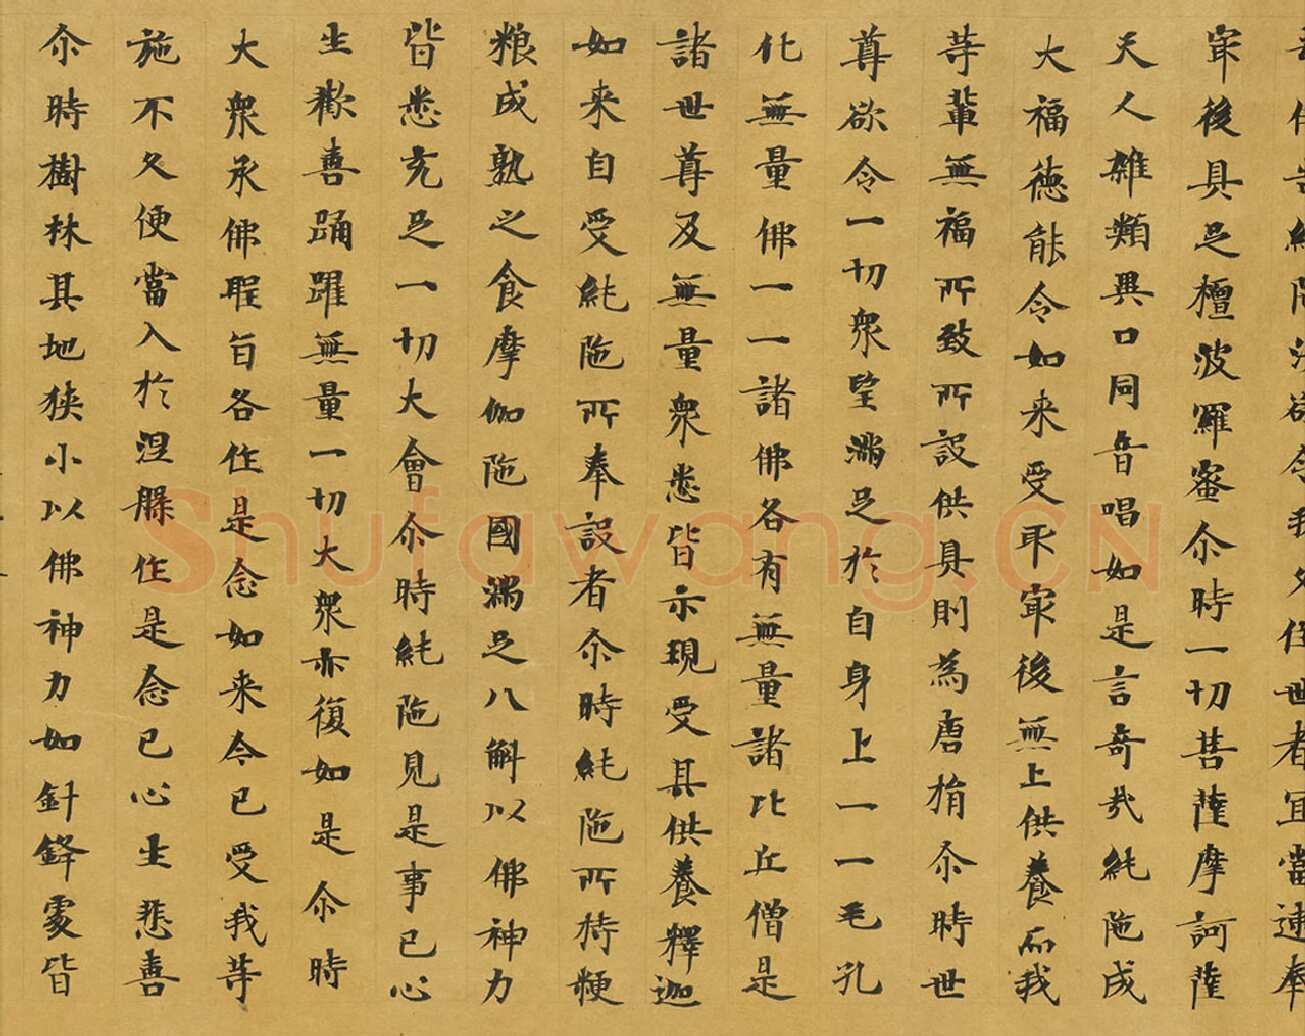 世者宜當速奉
冣後具足檀波羅蜜尒時一切菩薩摩訶薩
天人雜類異口同音唱如是言奇哉純陁成
大福德能令如来受取冣後無上供養而我
等輩無福所致所設供具則為唐捐尒時世
尊欲令一切眾望滿足於自身上一一毛孔
化無量佛一一諸佛各有無量諸比丘僧是
諸世尊及無量眾悉皆示現受其供養釋迦
如来自受純陁所奉設者尒時純陁所持粳
粮成熟之食摩伽陁國滿足八斛以佛神力
皆悉充足一切大會尒時純陁見是事已心
生歡喜踊躍無量一切大眾亦復如是尒時
大眾承佛聖旨各作是念如来今已受我等
施不久便當入於涅槃作是念已心生悲喜
尒時樹林其地狹小以佛神力如針鋒處皆
Shufawang.CN